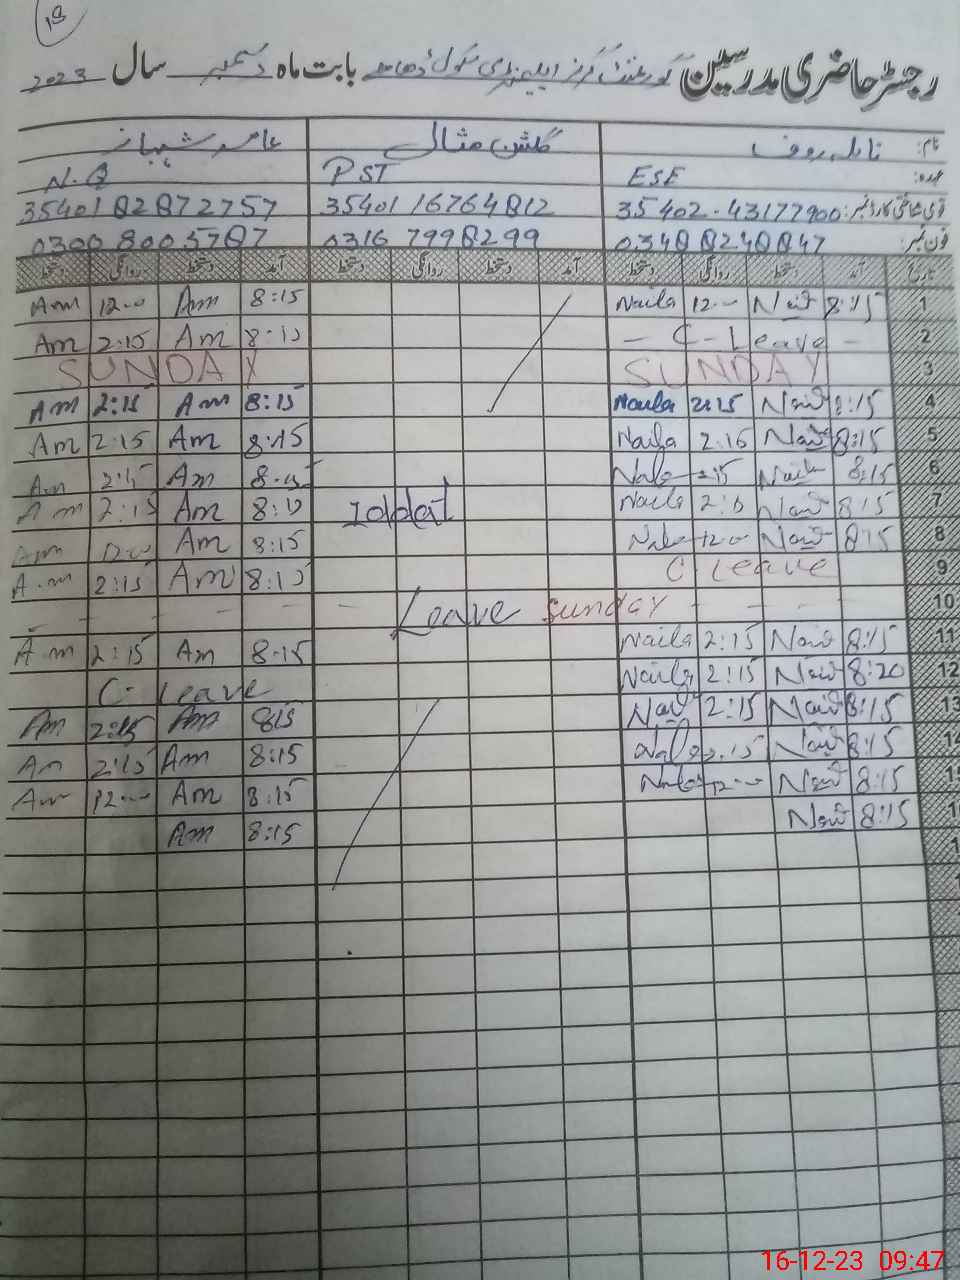 19
رجسٹر حاضری مدرسین گورنمنٹ گرلز ایلیمنٹری سکول بابت ماہ دسمبر سال 2023
نام: نائلہ روف گلشن مثالی عامر شہباز
عہدہ: ESE PST N.Q
قومی شناختی کارڈ نمبر: 35402-43177900 35401 16764812 35401 82872757
فون نمبر: 0348 8248847 0316 7998299 0300 8005787
تاریخ آمد دستخط روانگی دستخط آمد دستخط روانگی دستخط آمد دستخط روانگی دستخط
Am 12-00 Am 8:15 Naila 12-00 Nail 8:15 1
Am 2:15 Am 8:15 - C-Leave - 2
SUNDAY SUNDAY 3
Am 2:15 Am 8:15 Naila 2:15 Nail 8:15 4
Am 2:15 Am 8:15 Naila 2:15 Nail 8:15 5
Am 2:15 Am 8:15 Naila 2:15 Naila 8:15 6
Am 2:15 Am 8:15 Iddat Naila 2:15 Nail 8:15 7
Am 12-00 Am 8:15 Naila 12-00 Nail 8:15 8
A.m 2:15 Am 8:15 C-Leave 9
- - - - - Leave Sunday - - - - 10
A.m 2:15 Am 8:15 Naila 2:15 Nail 8:15 11
C-Leave Naila 2:15 Nail 8:20 12
Am 2:15 Am 8:15 Nail 2:15 Nail 8:15 13
Am 2:15 Am 8:15 Naila 2:15 Nail 8:15 14
Am 12-00 Am 8:15 Naila 12-00 Nail 8:15 15
Am 8:15 Nail 8:15 1
16-12-23 09:47